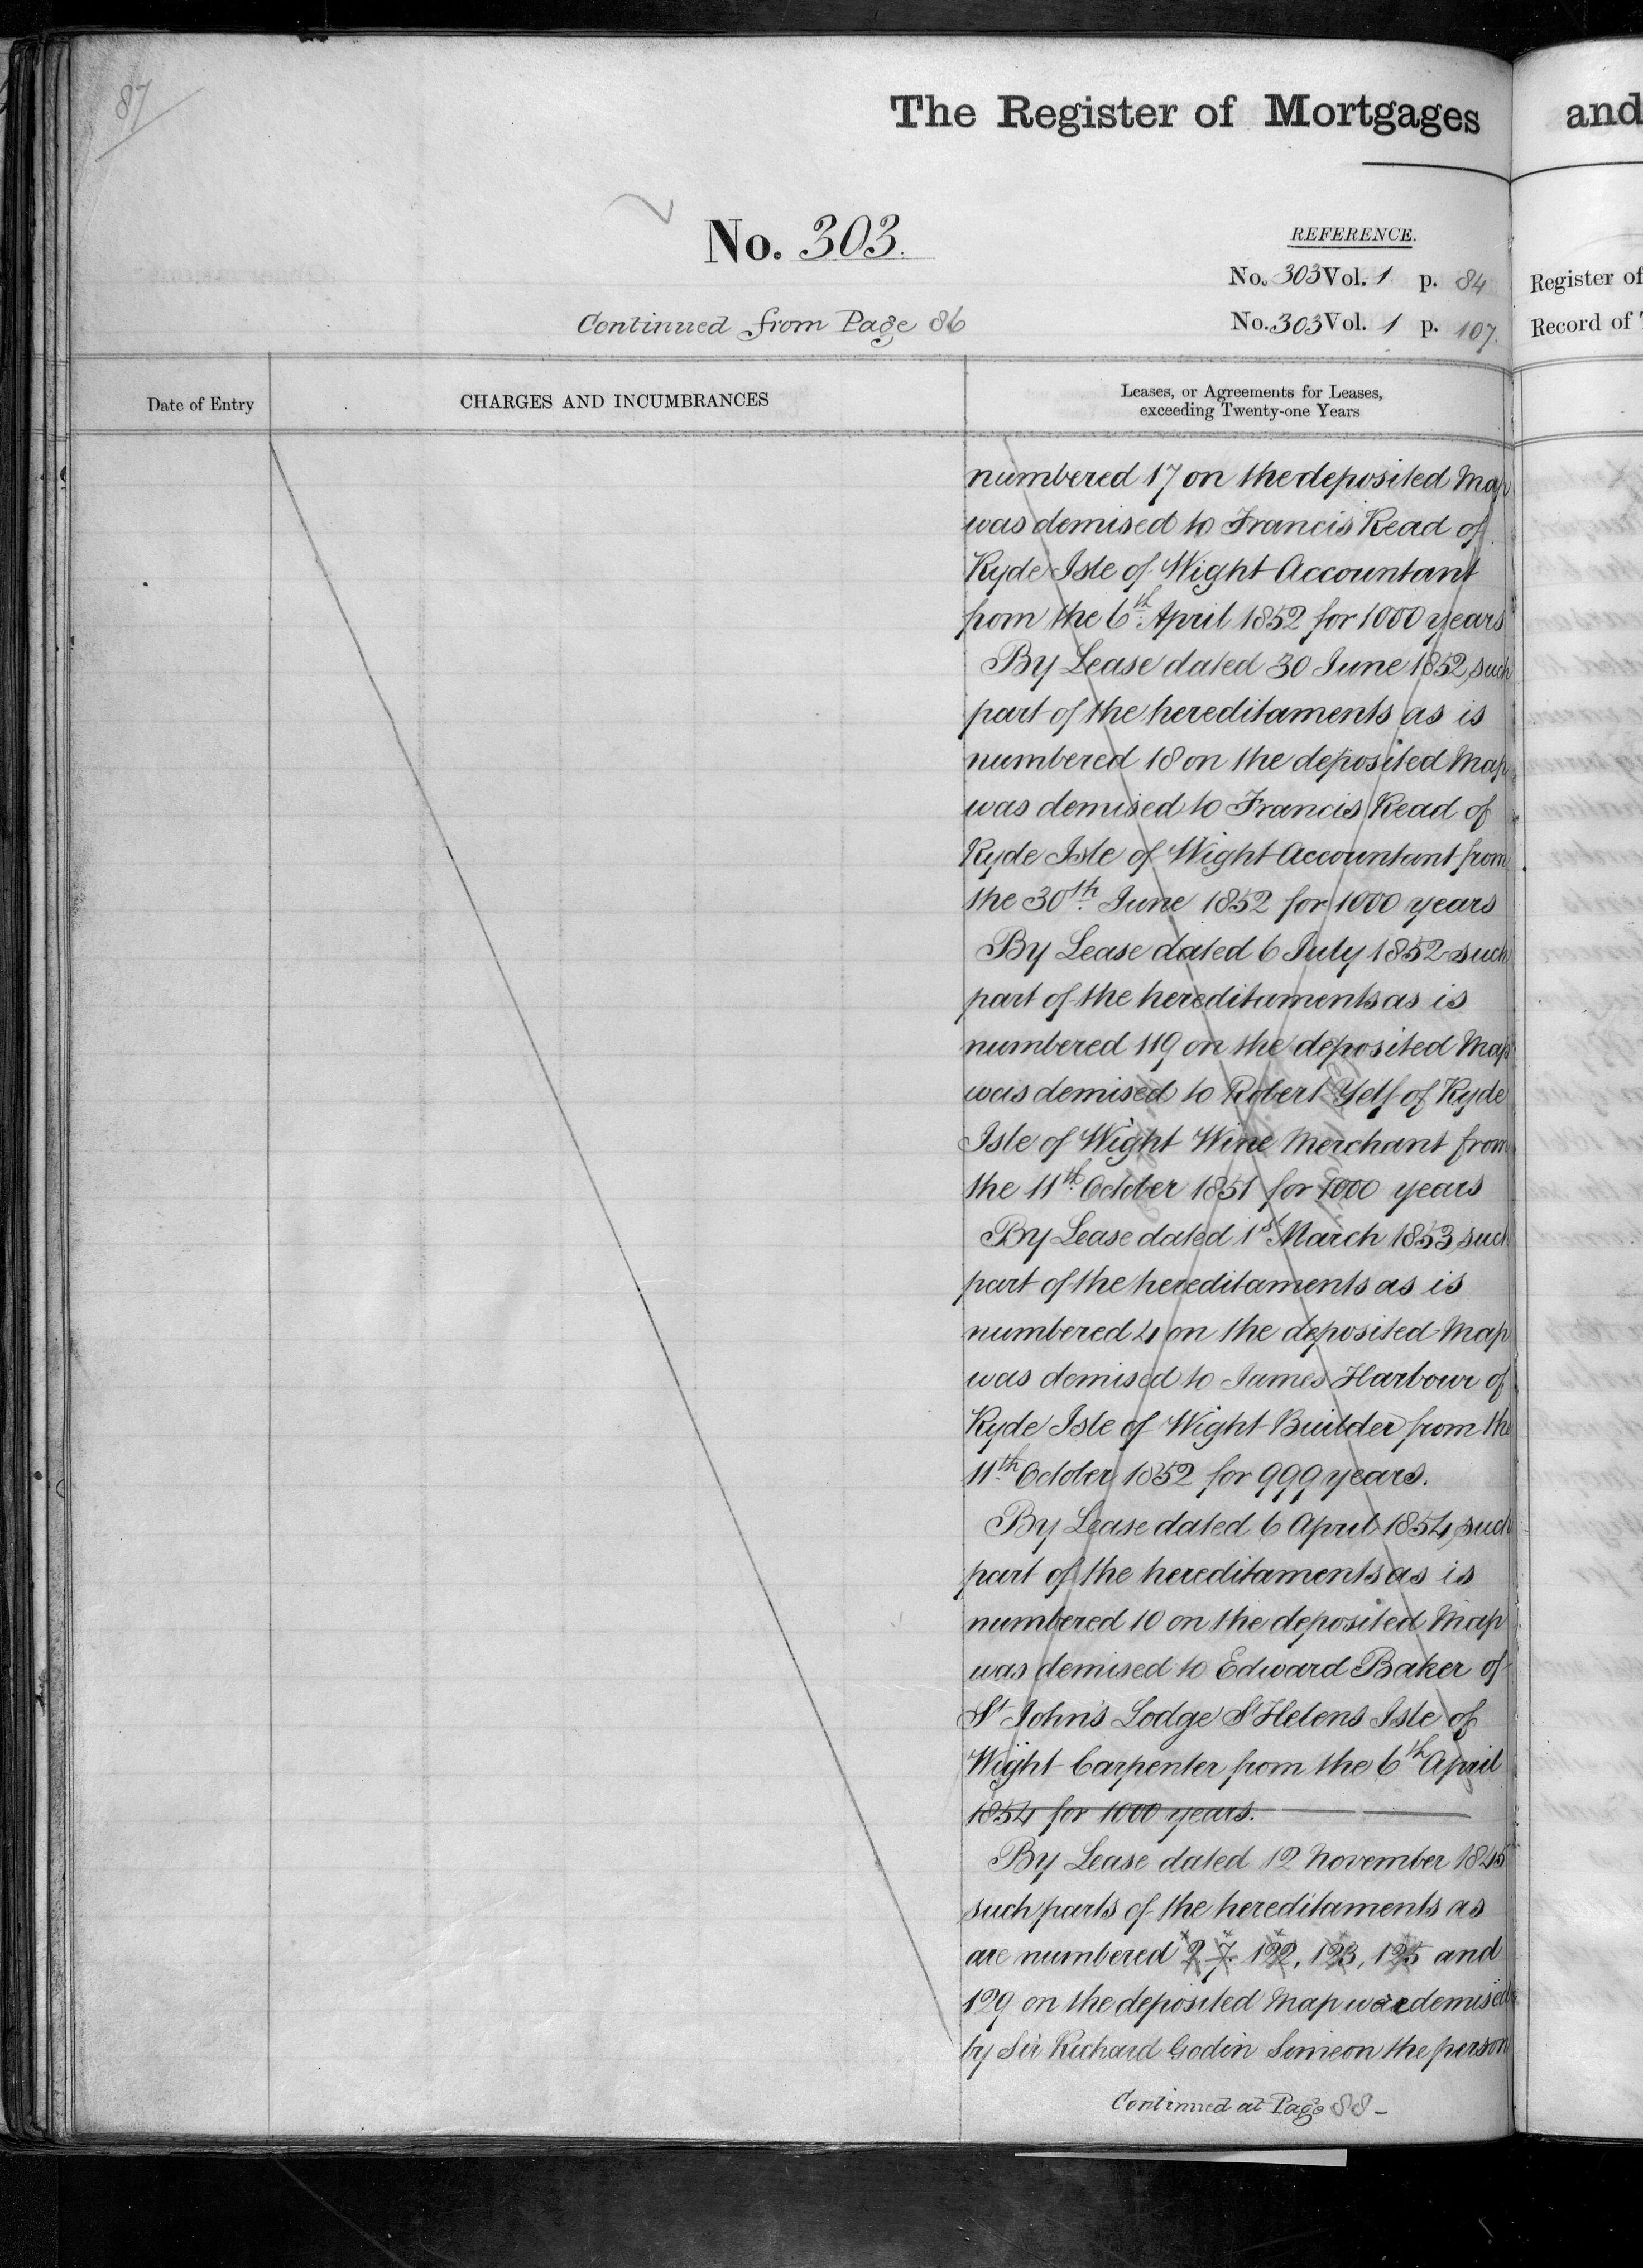 87
The Register of Mortgages and
No. 303.
REFERENCE.
No. 303 Vol. 1 p. 84 Register of
Continued from Page 86
No. 303 Vol. 1 p. 107. Record of
Date of Entry
CHARGES AND INCUMBRANCES
Leases, or Agreements for Leases,
exceeding Twenty-one Years
numbered 17 on the deposited Map
was demised to Francis Read of
Ryde Isle of Wight Accountant
from the 6th April 1852 for 1000 years
By Lease dated 30 June 1852, such
part of the hereditaments as is
numbered 18 on the deposited Map
was demised to Francis Read of
Ryde Isle of Wight Accountant from
the 30th June 1852 for 1000 years
By Lease dated 6 July 1852 such
part of the hereditaments as is
numbered 119 on the deposited Map
was demised to Robert Yelf of Ryde
Isle of Wight Wine Merchant from
the 11th October 1851 for 1000 years
By Lease dated 1st March 1853, such
part of the hereditaments as is
numbered 4 on the deposited Map
was demised to James Harbour of
Ryde Isle of Wight Builder from the
11th October 1852 for 999 years.
By Lease dated 6 April 1854, such
part of the hereditaments as is
numbered 10 on the deposited Map
was demised to Edward Baker of
St John's Lodge St Helens Isle of
Wight Carpenter from the 6th April
1854 for 1000 years.
By Lease dated 12 November 1845
such parts of the hereditaments as
are numbered 2. 7. 122, 123, 125 and
129 on the deposited Map were demised
by Sir Richard Godin Simeon the person
Continued at Page 88